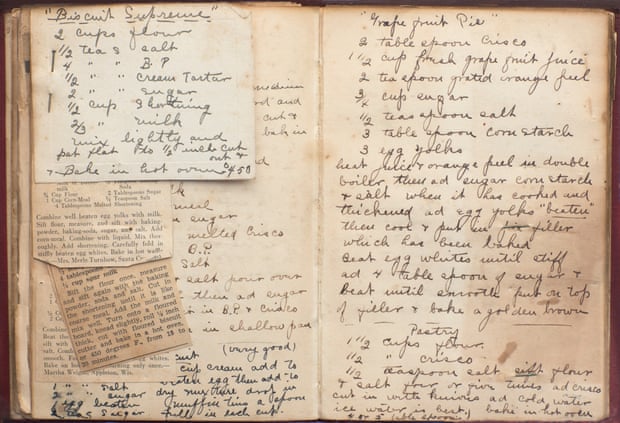 "Biscuit Supreme"
2 cups flour
1/2 tea s salt
4 " " B.P
1/2 " " cream Tartar
2 " " sugar
1/2 cup Shortning
2/3 " milk
mix lightly and
pat flat to 1/2 inch cut
out &
Bake in hot oven 450
milk
Soda
3/4 Cup Flour
2 Tablespoons Sugar
1 Cup Corn-Meal
1/2 Teaspoon Salt
4 Tablespoons Melted Shortening
Combine well beaten egg yolks with milk.
Sift flour, measure, and sift with baking
powder, baking-soda, sugar, and salt. Add
corn-meal. Combine with liquid. Mix thor-
oughly. Add shortening. Carefully fold in
stiffly beaten egg whites. Bake in hot waffle
—Mrs. Merle Turnbow, Santa
2 tablespoons
3/4 cup sour milk
Sift the flour once, measure
and sift again with the baking
powder, soda and salt. Cut in
the shortening until it is like
corn meal. Add the milk and
mix well. Turn onto a floured
board, knead slightly, roll 1/2 inch
thick, cut with floured biscuit
cutter and bake in a hot oven,
at 450 degrees F. from 12 to
15 minutes.
Combine
Beat the
sift with
Combine
smooth. F
Bake on
Martha W
Appleton, Wis.
and
cut &
bak in
meal
sugar
melled Crisco
B.P.
Salt
salt pour over
then ad sugar
in B.P. & Crisco
in shallow pan
(very good)
cup cream add to
beaten egg then add to
dry mixture drop in
muffin tins a spoon
full in each cup.
1 " " salt
2 " " sugar
1 egg beaten
2 teas sugar
"Grape fruit Pie"
2 table spoon Crisco
1 1/2 cup fresh grape fruit juice
2 tea spoon grated orange peel
3/4 cup sugar
1/2 teaspoon salt
3 table spoon corn starch
3 egg yolks
heat juice & orange peel in double
boiler then ad sugar corn starch
& salt when it has cooked and
thickened ad egg yolks "beaten"
then cool & put in pie filler
which has been baked
Beat egg whites until stiff
ad 4 table spoon of sugar &
beat until smooth put on top
of filler & bake a golden brown
Pastry
1 1/2 cups flour.
1/2 " crisco
1/2 teaspoon salt sift flour
& salt four or five times ad crisco
cut in with knives ad cold water
ice water is best, bake in hot oven
4 or 5 table spoon